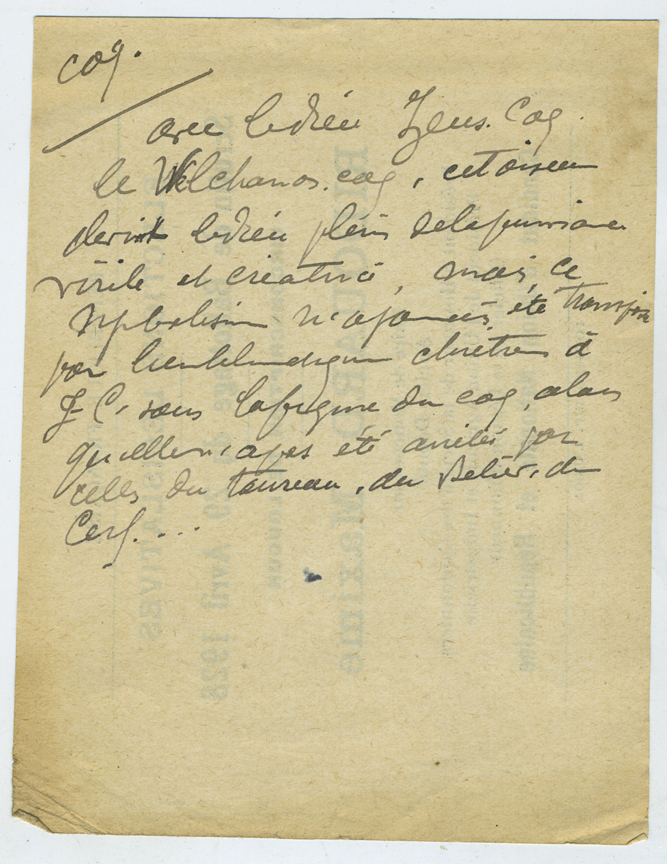 coq.
avec le dieu Zeus. Coq
le Velchanos. coq, cet oiseau
devint le dieu plein de la puissance
virile et créatrice, mais, ce
symbolisme n'a jamais été transposé
par l'emblématique chrétien à
J-C. sous la figure du coq, alors
qu'elle n'a pas été arrêtée par
celles du taureau, du Bélier, du
Cerf....
29 Avril 1928
Maxime